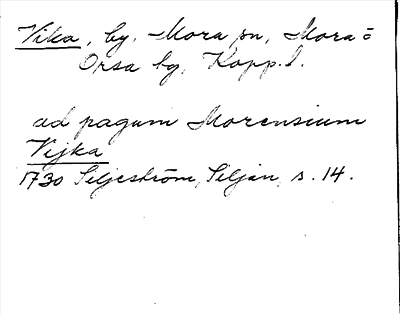 Vika, by, Mora sn, Mora o
Orsa bg, Kopp. l.
ad pagum Morensium
Vijka
1730 Siljeström, Siljan, s. 14.